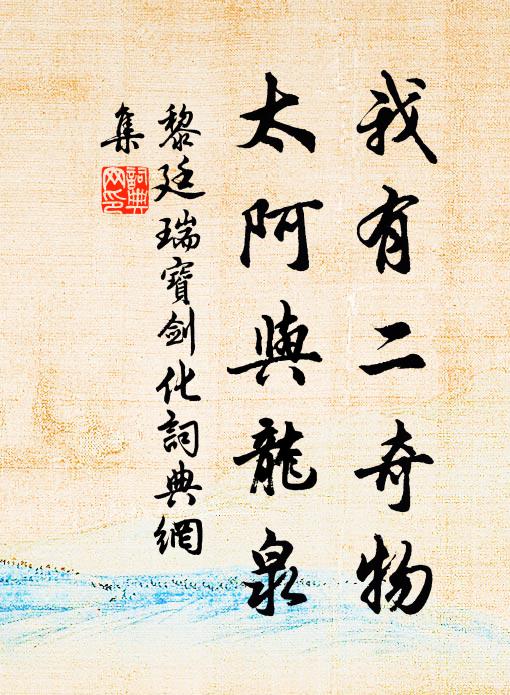 我有二奇物
太阿與龍泉
黎廷瑞寶劍化詞典網
集
詞典網印